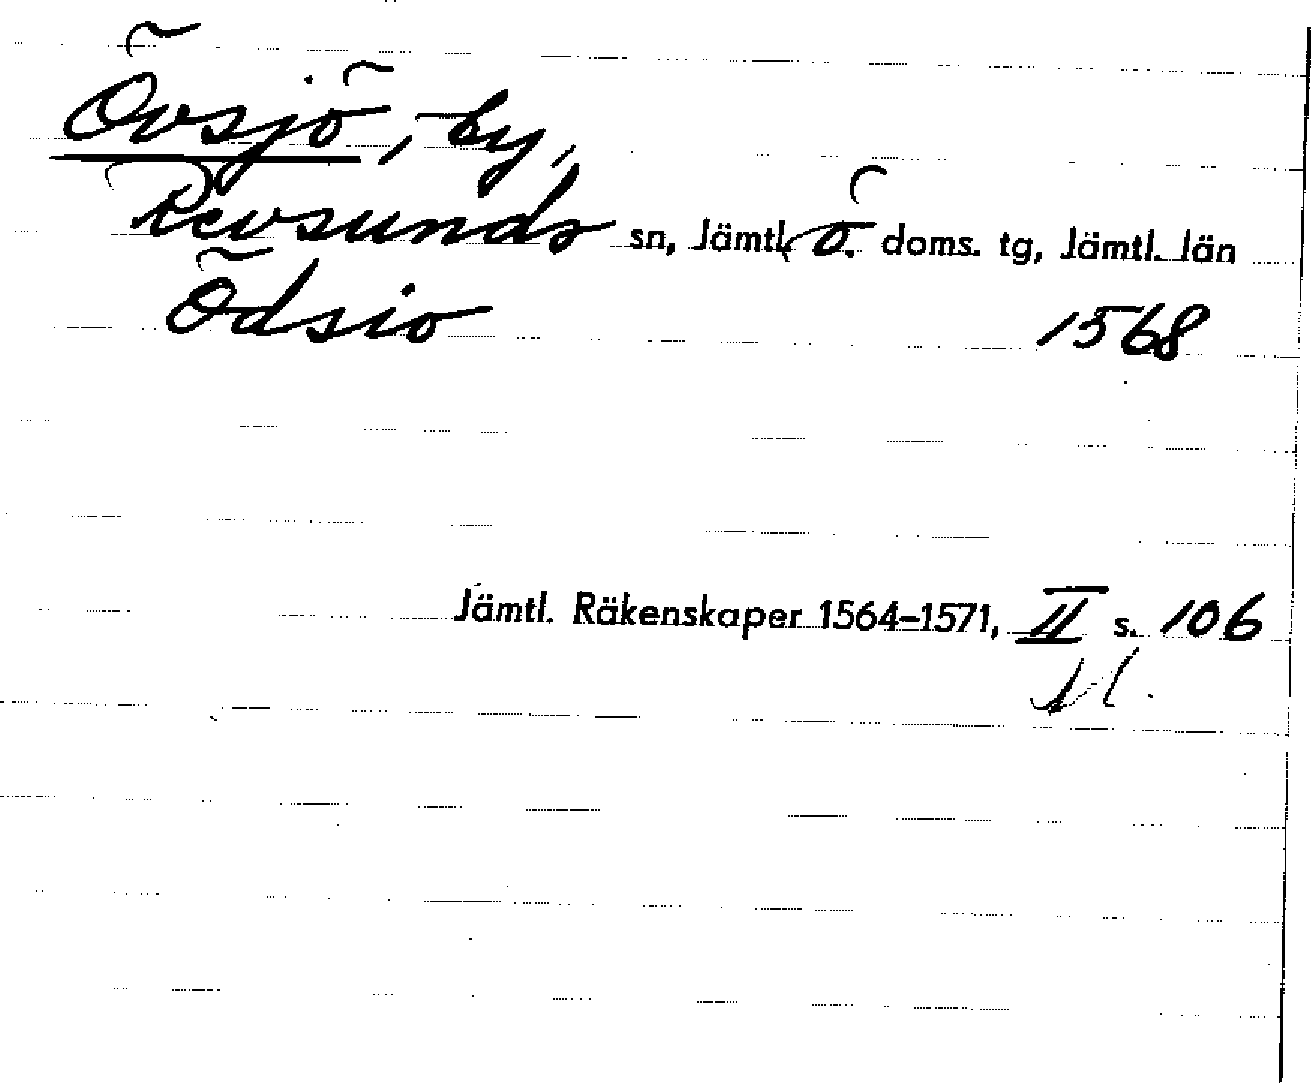 Övsjö, by,
Revsunds sn, Jämtl. ö. doms. tg, Jämtl. län
Ödsiö 1568
Jämtl. Räkenskaper 1564–1571, II s. 106